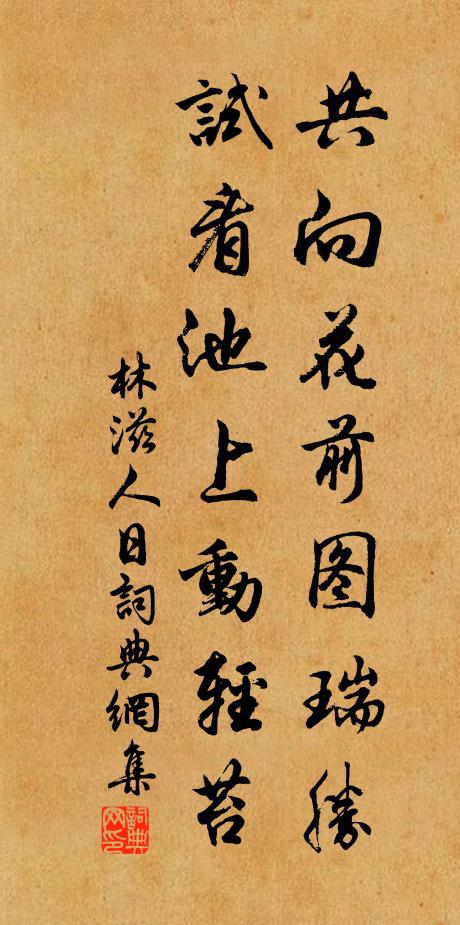 共向花前图瑞勝
試看池上動輕苔
林滋人日詞典網集
詞典网印